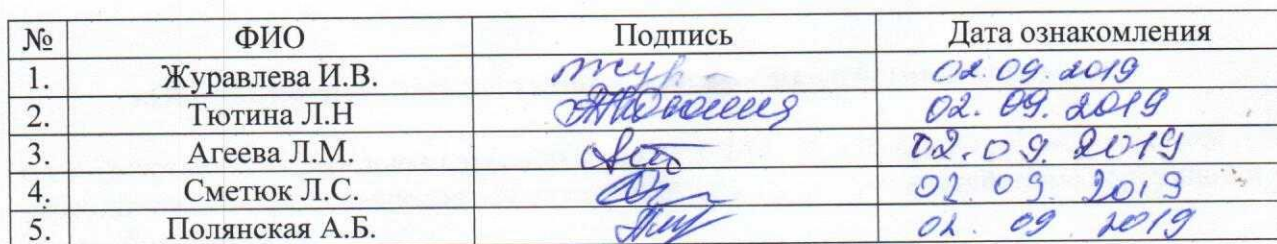 № ФИО Подпись Дата ознакомления
1. Журавлева И.В. 02.09.2019
2. Тютина Л.Н 02.09.2019
3. Агеева Л.М. 02.09.2019
4. Сметюк Л.С. 02.09.2019
5. Полянская А.Б. 02.09 2019